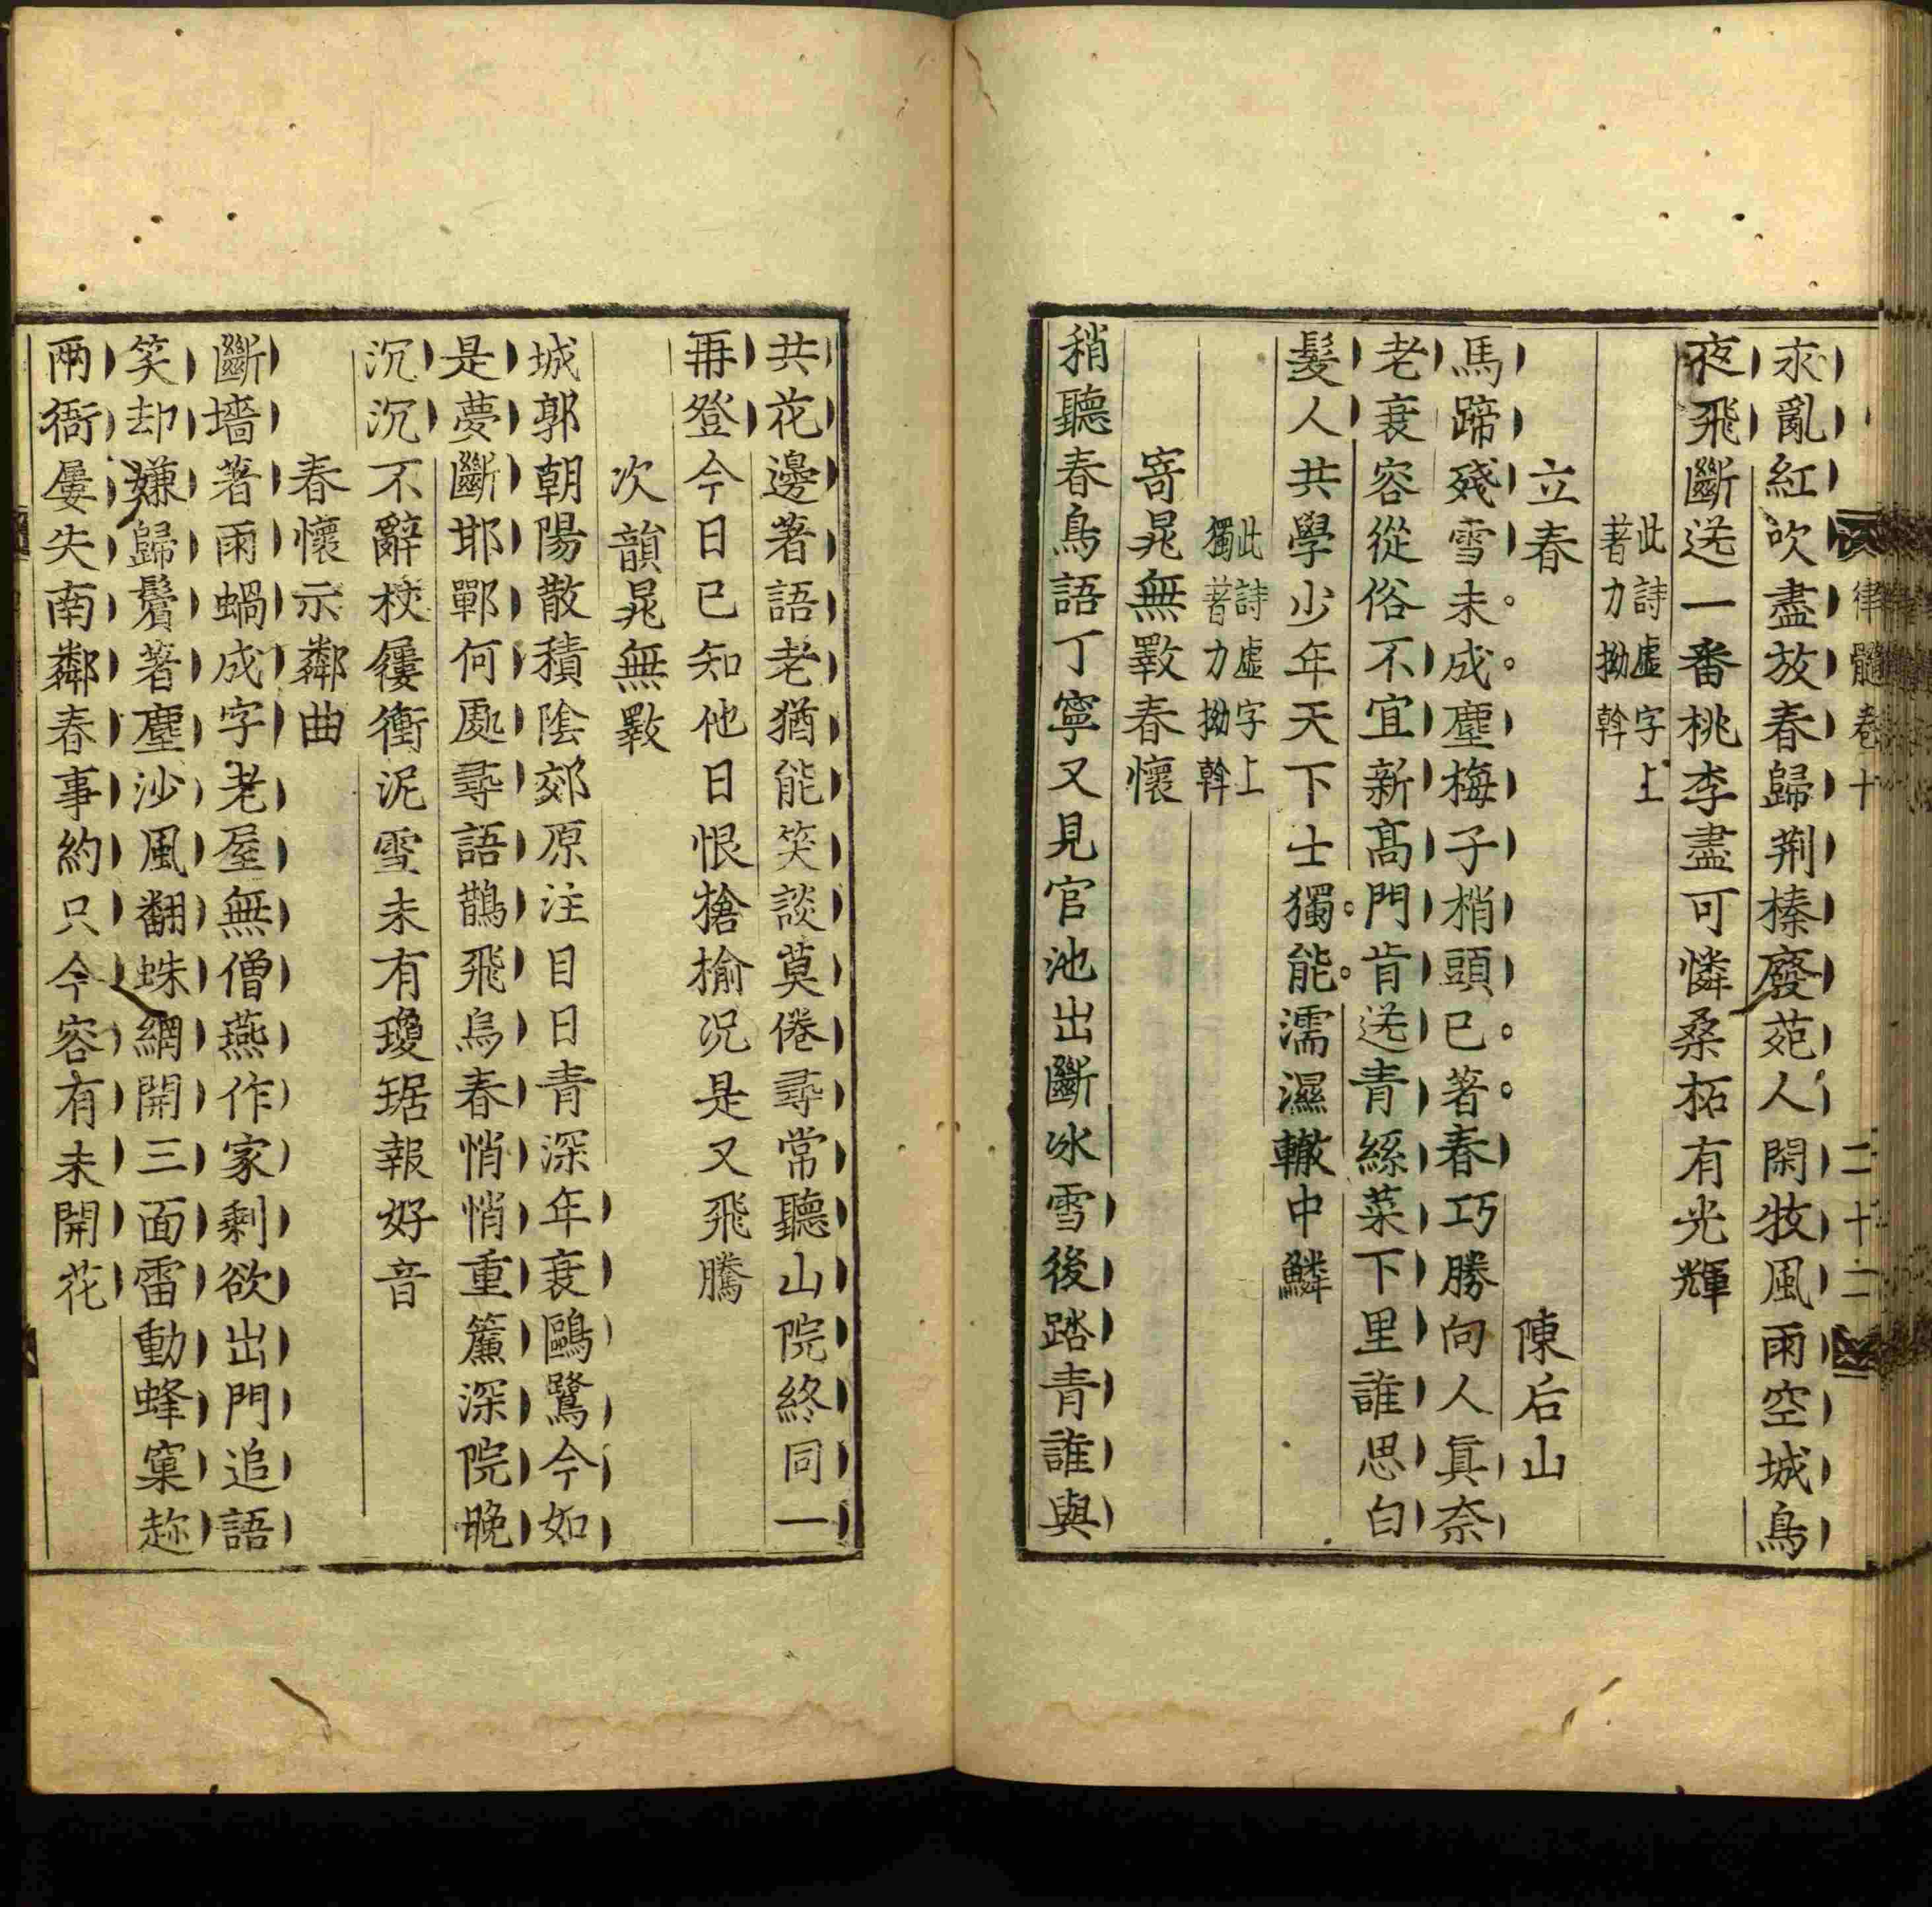 律髓卷十 二十二
求亂紅吹盡放春歸荆榛廢苑人閑牧風雨空城鳥
夜飛斷送一番桃李盡可憐桑柘有光輝
此詩虛字上
著力拗斡
立春 陳后山
馬蹄殘雪未成塵梅子梢頭已著春巧勝向人真奈
老衰容從俗不宜新高門肯送青絲菜下里誰思白
髮人共學少年天下士獨能濡濕轍中鱗
此詩虛字上
獨著力拗斡
寄晁無斁春懷
稍聽春鳥語丁寧又見官池出斷冰雪後踏青誰與
共花邊著語老猶能笑談莫倦尋常聽山院終同一
再登今日已知他日恨搶榆况是又飛騰
次韻晁無斁
城郭朝陽散積陰郊原注目日青深年衰鷗鷺今如
是夢斷邯鄲何處尋語鵲飛烏春悄悄重簾深院晚
沉沉不辭杖屨衝泥雪未有瓊琚報好音
春懷示鄰曲
斷墻著雨蝸成字老屋無僧燕作家剩欲出門追語
笑却嫌歸鬢著塵沙風翻蛛網開三面雷動蜂窠趂
兩衙屢失南鄰春事約只今容有未開花